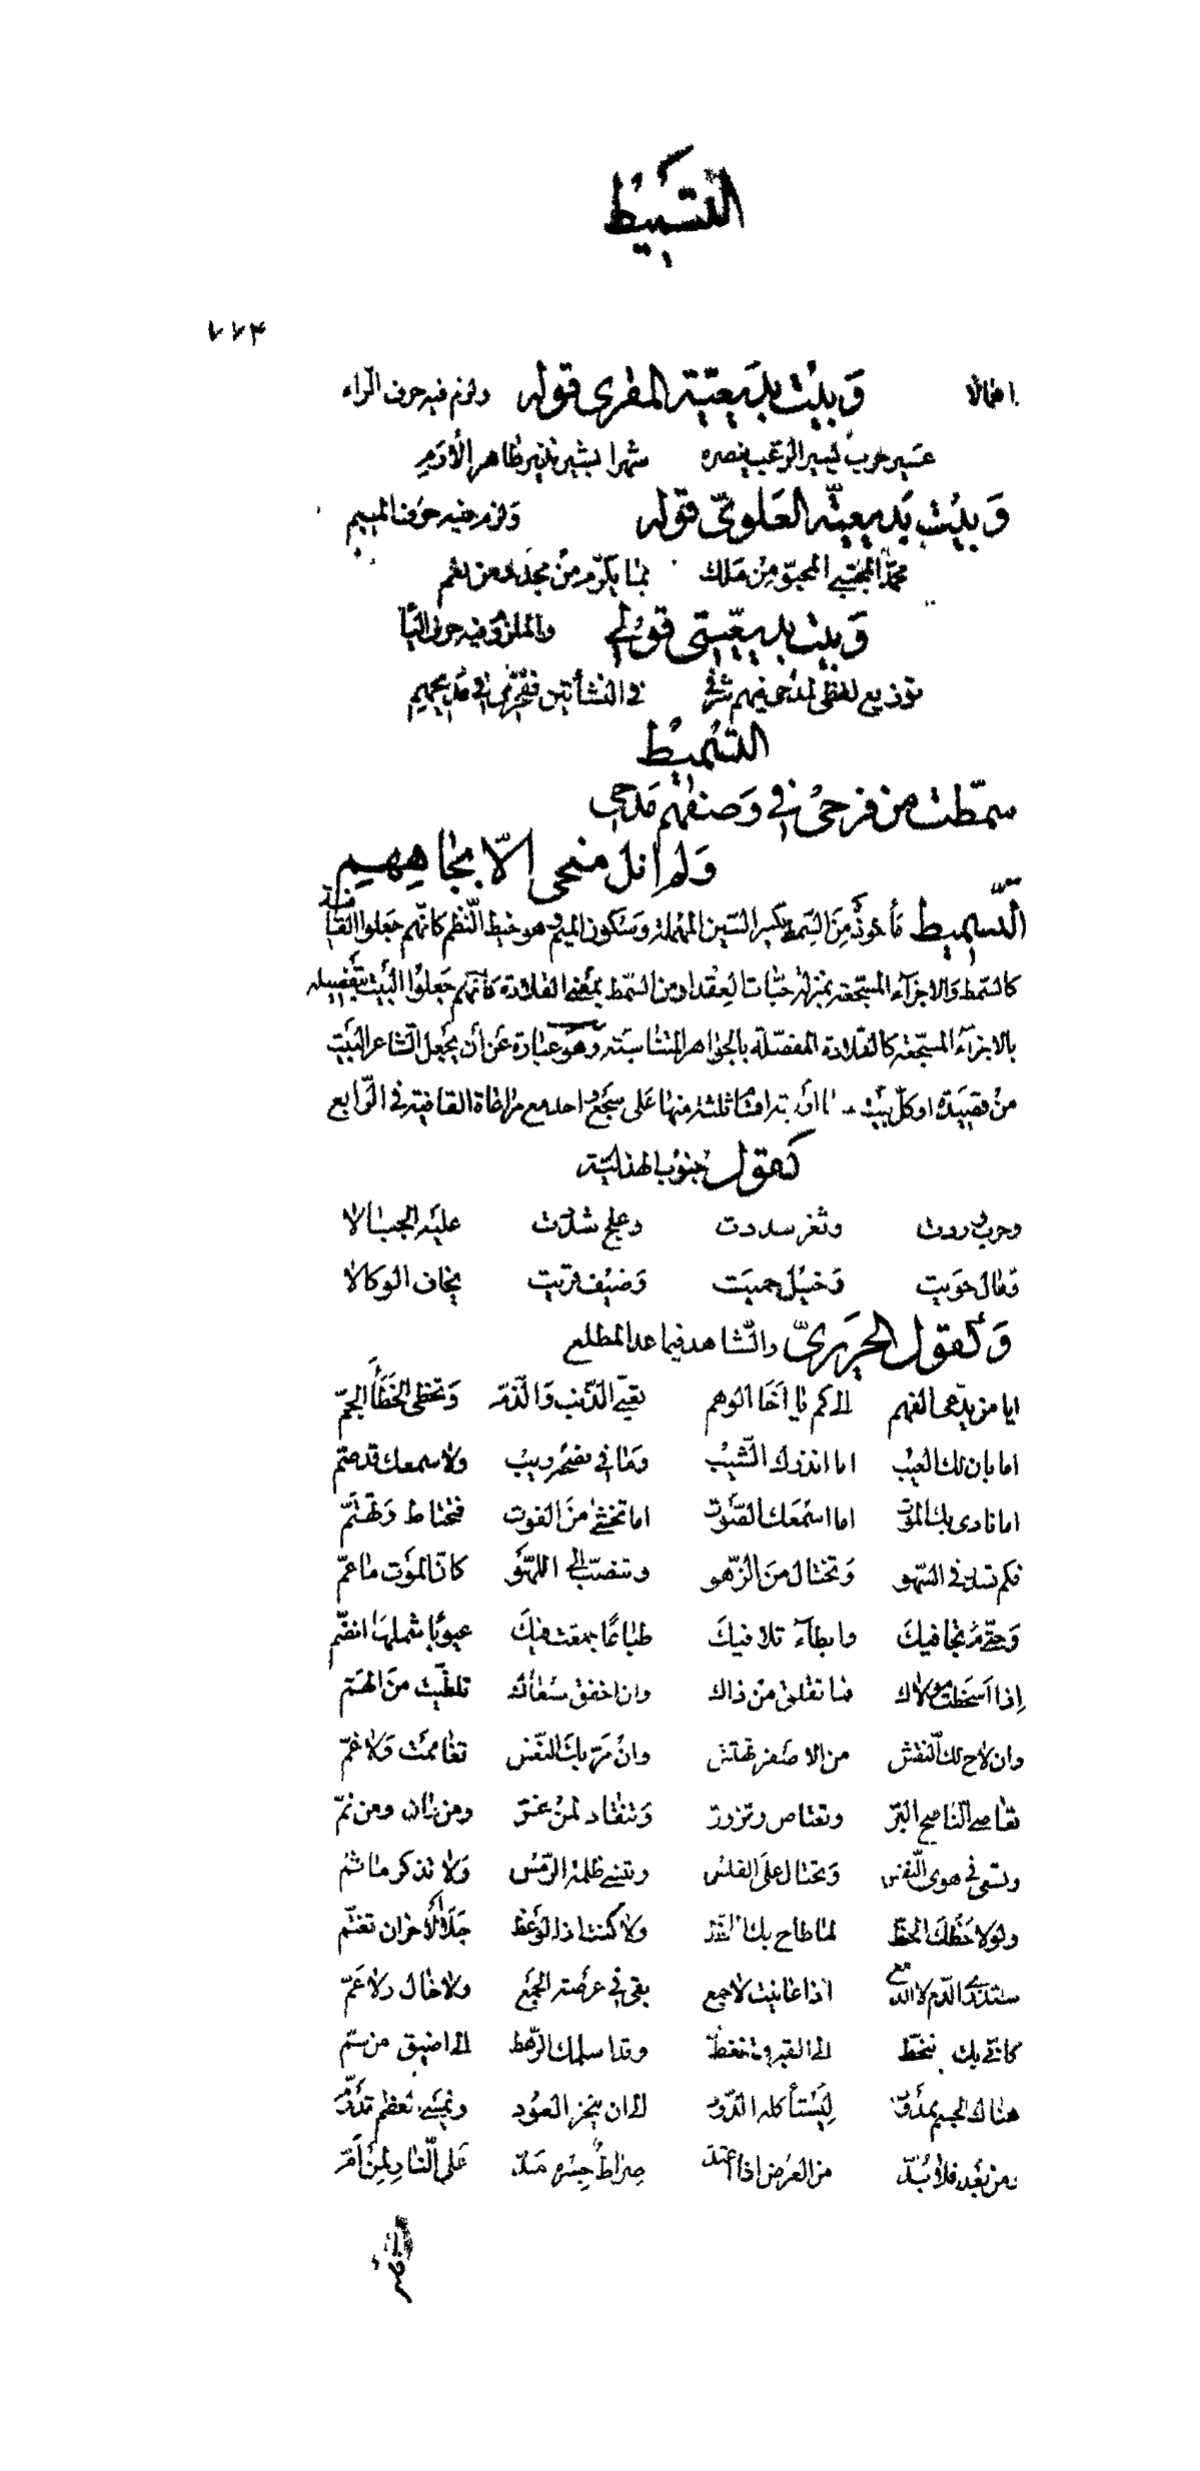 التسميط
٧٧٤
اهمالا وبيت بديعية المقري قوله ولزم فيه حرف الراء
عسير حرب يسير الرعب ينصره شهرا بشير نذير ظاهر الأدم
وبيت بديعيّة العلويّ قوله ولزم فيه حرف الميم
محمّد المجتبى المحبوّ من ملك بما يكرّم من مجد ومن نعم
وبيت بديعيّتي قولي والملزوم فيه حرف الياء
توزيع لفظي لمدحي فيهم شرفي في النشأتين ففخري في مديحهم
التسميط
سمّطت من فرحي في وصفهم مدحي
ولم انل منحي إلّا بجاههم
التّسميط مأخوذ من السّمط بكسر السّين المهملة وسكون الميم وهو خيط النّظم كانّهم جعلوا القافية
كالسّمط والاجزآء المسجّعة بمنزلة حبّات العقد او من السّمط بمعنى القلادة كأنّهم جعلوا البيت بتفصيله
بالاجزآء المسجّعة كالقلادة المفصّلة بالجواهر المتناسبة وهو عبارة عن أن يجعل الشاعر البيت
من قصيدة او كلّ بيت ثلثة منها على سجع واحد مع مراعاة القافية في الرّابع
كقول جنوب الهذليّة
وحرب وردت وثغر سددت وعلج شددت عليه الحبالا
ومال حويت وخيل حميت وضيف قريت يخاف الوكالا
وكقول الحريريّ والشاهد فيما عدا المطلع
ايا من يدّعى الفهم إلى كم يا أخا الوهم تعبّي الذّنب والذّم وتخطى الخطأ الجمّ
اما بان لك العيب اما انذرك الشّيب وما في نصحه ريب ولا سمعك قد صمّ
اما نادى بك الموت اما اسمعك الصّوت اما تخشى من الفوت فتحتاط وتهتمّ
فكم تسدر في السّهو وتختال من الزّهو وتنصبّ الى اللّهو كانّ الموت ما عمّ
وحتّى م تجافيك وابطآء تلافيك طباعًا جمعت فيك عيوبًا شملها انضمّ
إذا أسخطت مولاك فما تقلق من ذاك وان اخفق مسعاك تلظّيت من الهمّ
وان لاح لك النّقش من الاصفر تهتش وان مرّ بك النّعش تغاممت ولا غمّ
تعاصي النّاصح البرّ وتعتاص وتزورّ وتنقاد لمن غرّ ومن مان ومن نمّ
وتسعى في هوى النّفس وتحتال على الفلس وتنسى ظلمة الرّمس ولا تذكر ما ثمّ
ولولاحظك الحظّ لما طاح بك اللّحظ ولا كنت اذا الوعظ جلا الأحزان تغتمّ
ستذري الدّم لا الدّمع اذا عاينت لا جمع يقي في عرصة الجمع ولا خال ولا عمّ
كانّي بك تنحطّ الى القبر وتنغطّ وقد اسلمك الرّهط الى اضيق من سمّ
هناك الجسم ممدود ليستأكله الدّود الى ان ينخر العود ويمسى العظم قد رمّ
ومن بعد فلا بدّ من العرض اذا اعتدّ صراط جسره مدّ على النّار لمن أمّ